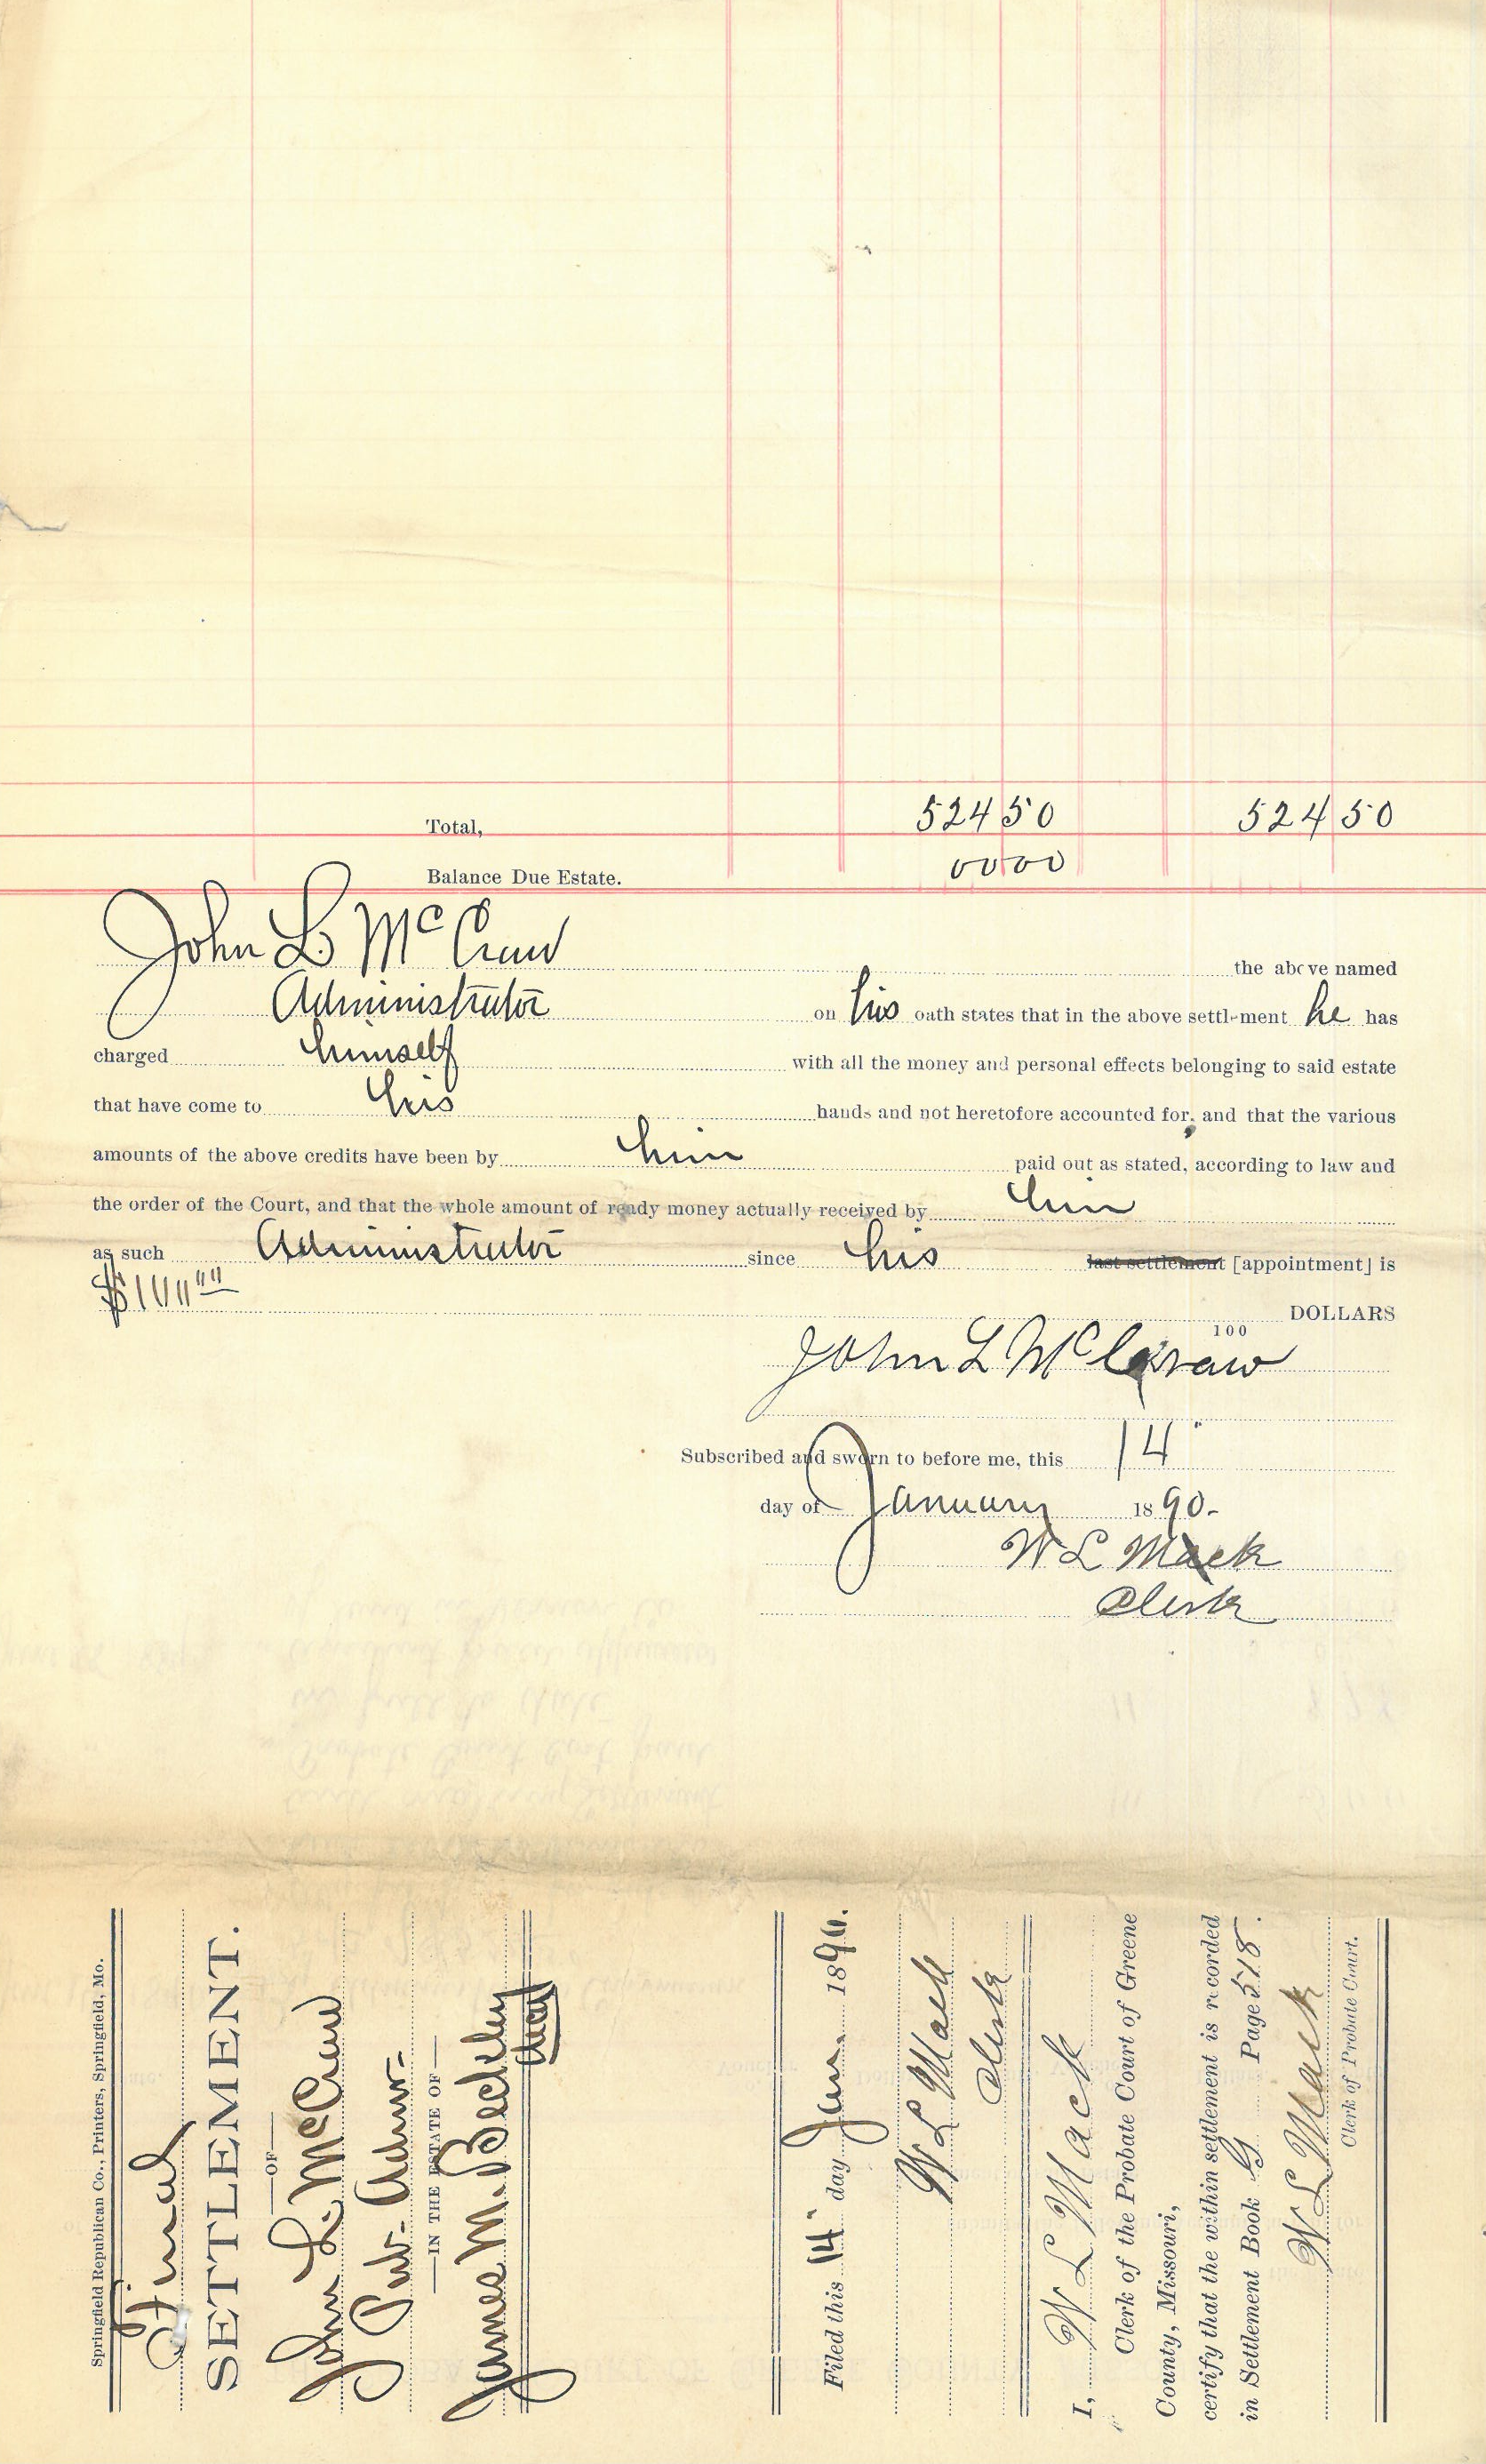 Total, 524 50 524 50
Balance Due Estate. 00 00
John L McCraw the above named
Administrator on his oath states that in the above settlement he has
charged himself with all the money and personal effects belonging to said estate
that have come to his hands and not heretofore accounted for, and that the various
amounts of the above credits have been by him paid out as stated, according to law and
the order of the Court, and that the whole amount of ready money actually received by him
as such Administrator since his last settlement [appointment] is
DOLLARS
100
John L McCraw
Subscribed and sworn to before me, this 14"
day of January 1890.
W L Mack
Clerk
Springfield Republican Co., Printers, Springfield, Mo.
Final
SETTLEMENT.
—OF—
John L. McCraw
Pub. Admr.
—IN THE ESTATE OF—
James M. Beckley
decd
Filed this 14" day Jan. 1890.
W L Mack
Clerk
I, W L Mack
Clerk of the Probate Court of Greene
County, Missouri,
certify that the within settlement is recorded
in Settlement Book G Page 518.
W L Mack
Clerk of Probate Court.